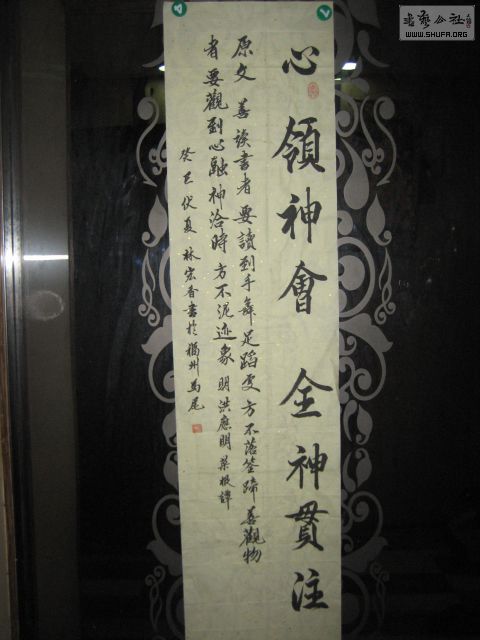 心領神會 全神貫注
原文 善讀書者要讀到手舞足蹈處方不落筌蹄善觀物
者要觀到心融神洽時方不泥迹象 明洪應明菜根譚
癸巳伏夏林宏香書於福州馬尾
书艺公社
WWW.SHUFA.ORG